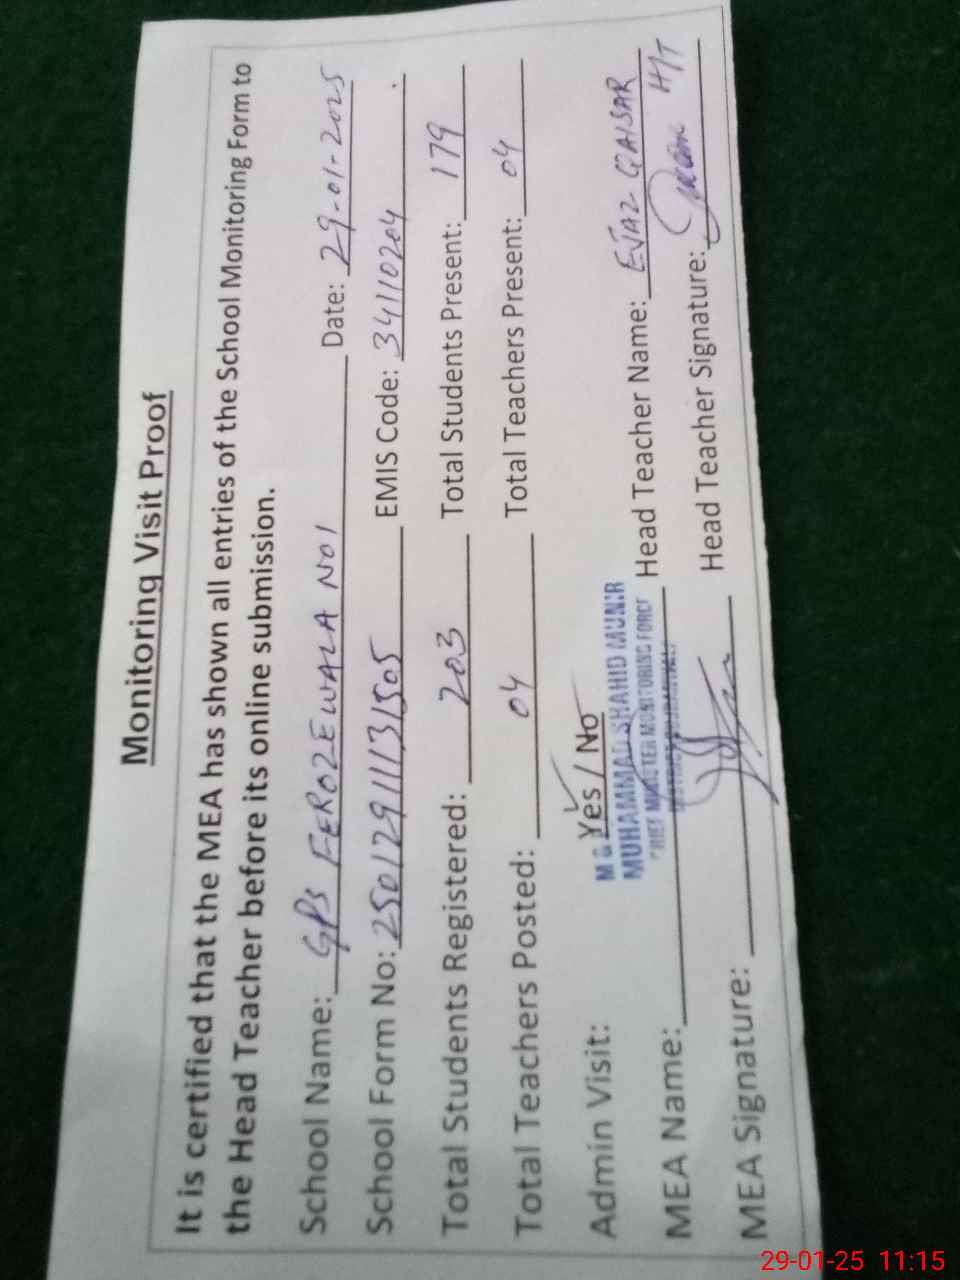 Monitoring Visit Proof
It is certified that the MEA has shown all entries of the School Monitoring Form to
the Head Teacher before its online submission.
School Name: GPS FEROZEWALA NO1 Date: 29-01-2025
School Form No: 250129111131505 EMIS Code: 34110204
Total Students Registered: 203 Total Students Present: 179
Total Teachers Posted: 04 Total Teachers Present: 04
Admin Visit: Yes / No
M & 
MUHAMMAD SHAHID MUNIR
CHIEF MINISTER MONITORING FORCE
DISTRICT GUJRANWALA
MEA Name: Head Teacher Name: EJAZ QAISAR
MEA Signature: Head Teacher Signature: H/T
29-01-25 11:15